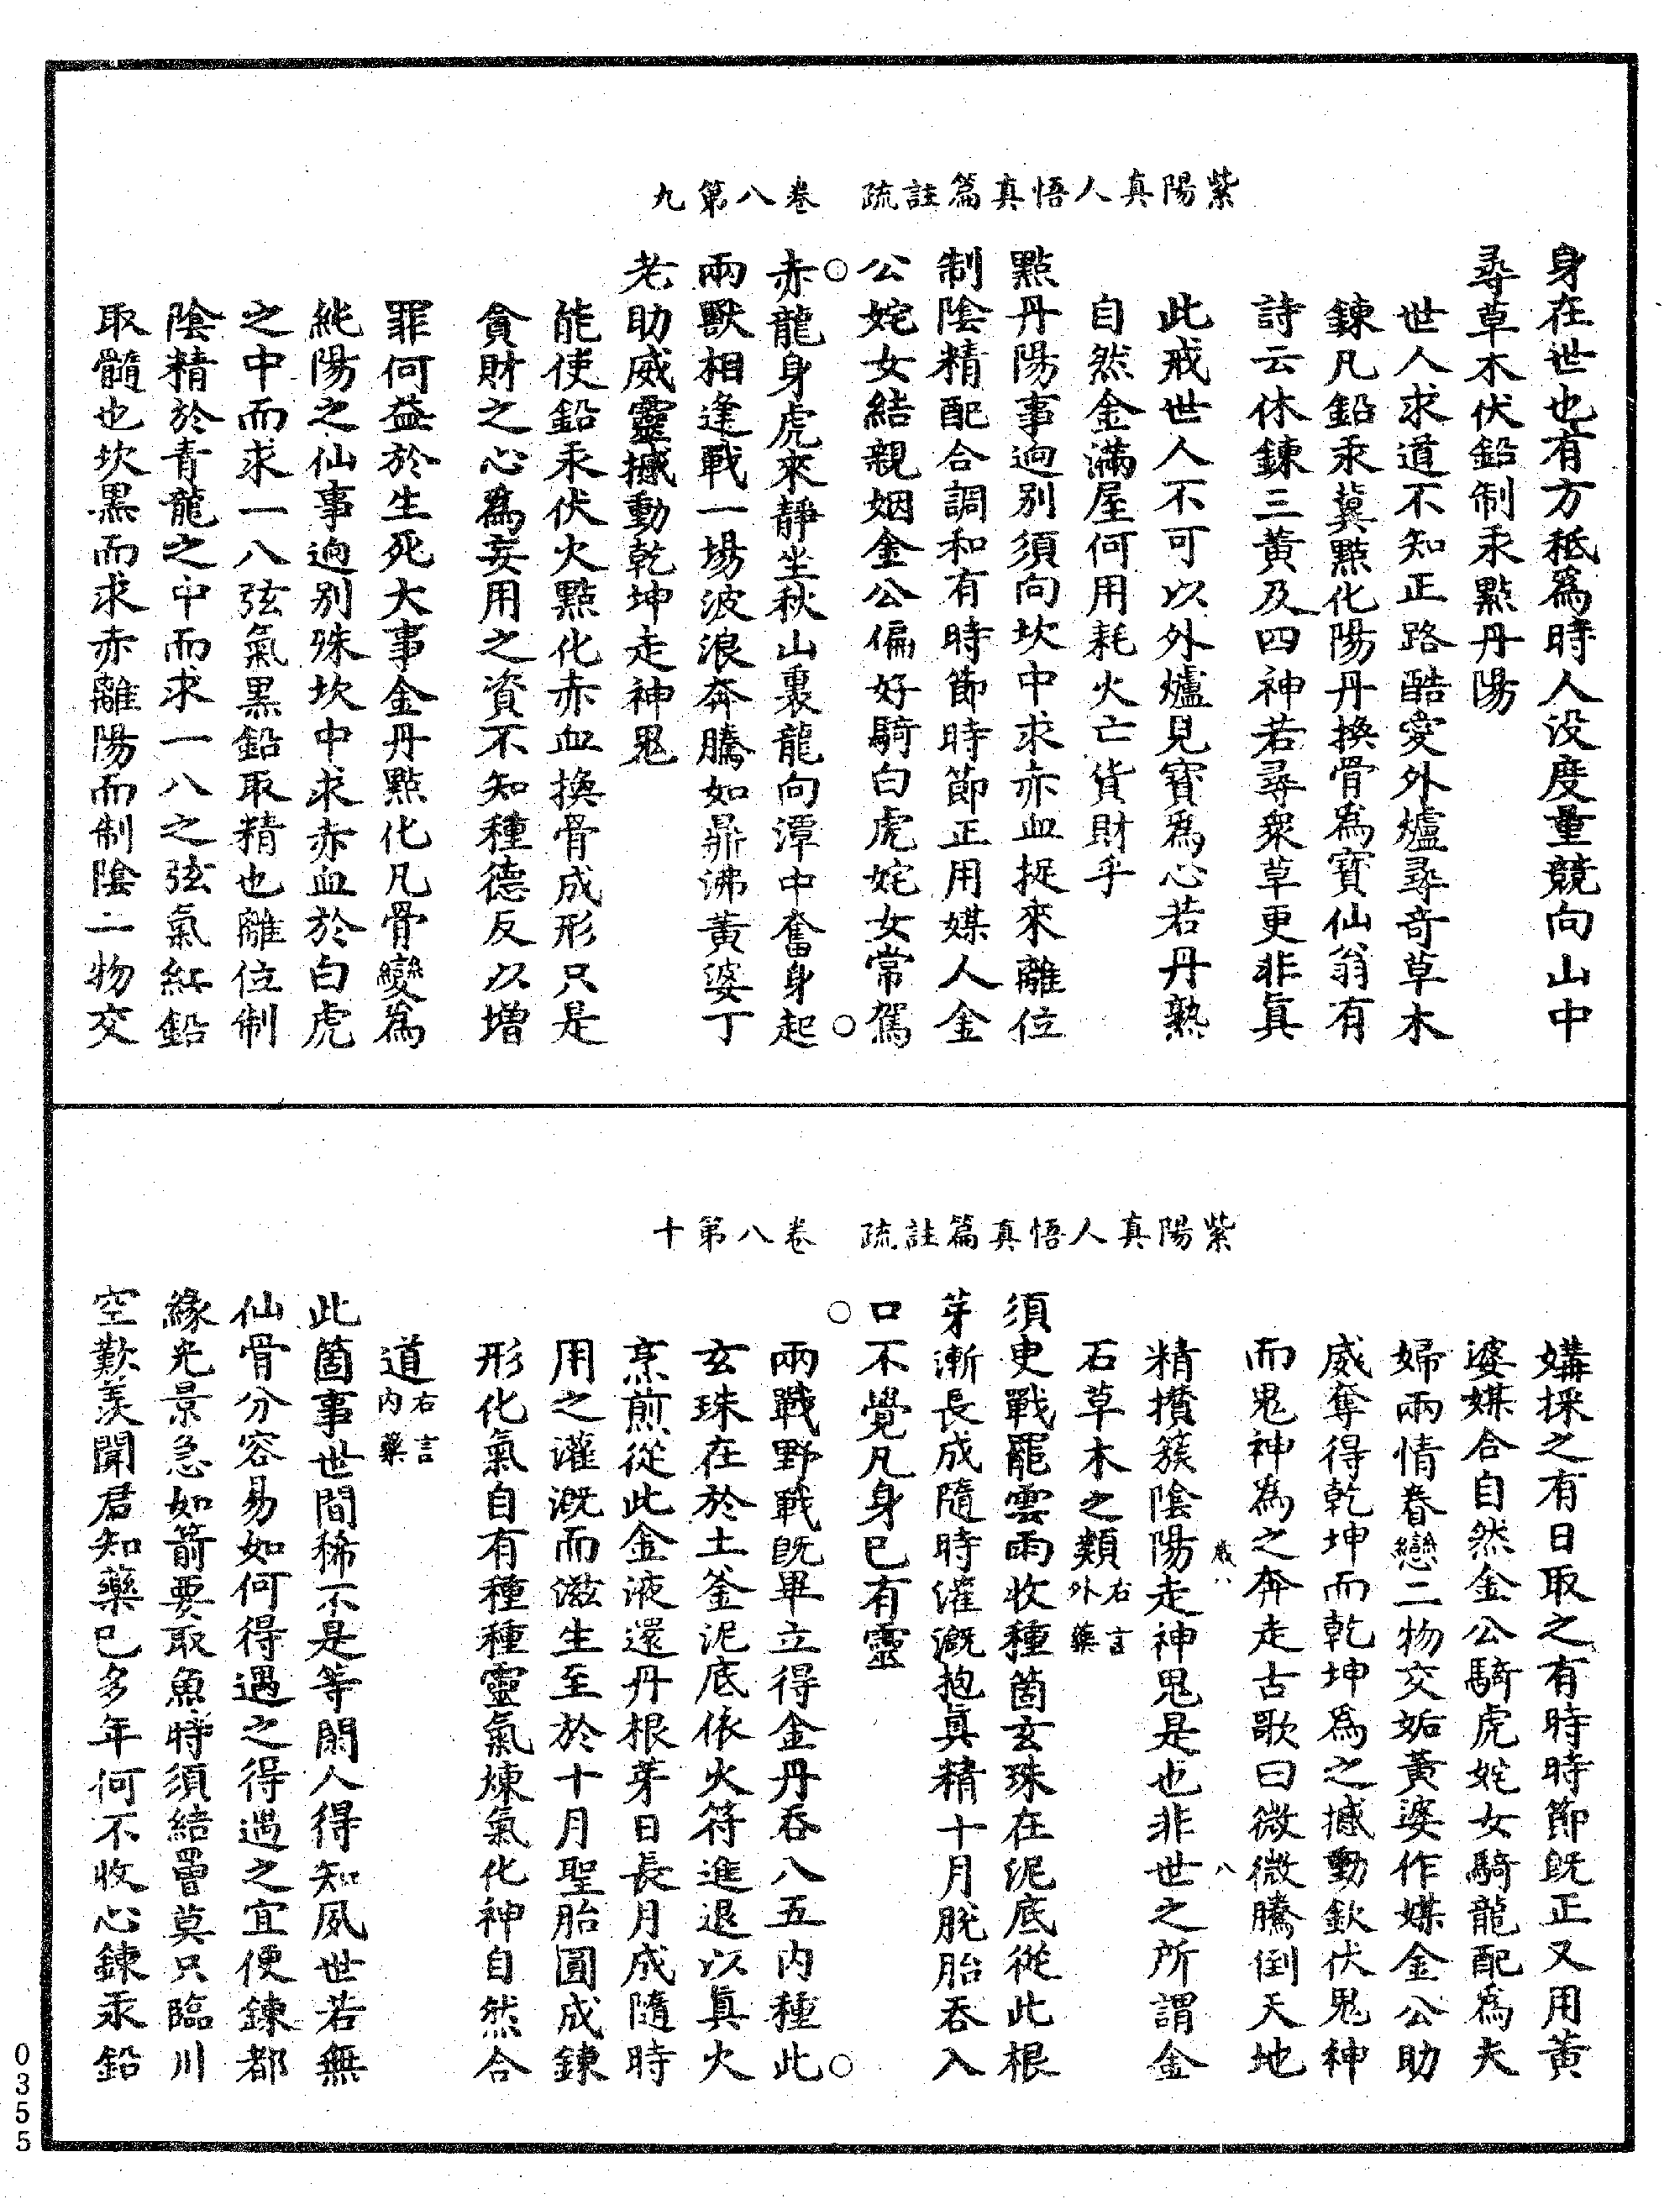 紫陽真人悟真篇註疏　卷八第九
身在世也有方秖爲時人没度量競向山中
尋草木伏鉛制汞㸃丹陽
世人求道不知正路酷愛外爐尋竒草木
鍊凡鉛汞冀㸃化陽丹換骨爲寳仙翁有
詩云休鍊三黄及四神若尋衆草更非眞
此戒世人不可以外爐見寳爲心若丹熟
自然金滿屋何用耗火亡貨財乎
㸃丹陽事逈别須向坎中求赤血捉來離位
制隂精配合調和有時節時節正用媒人金
公姹女結親姻金公偏好騎白虎姹女常駕
赤龍身虎來靜坐秋山裏龍向潭中奮身起
兩獸相逢戰一塲波浪奔騰如鼎沸黄婆丁
老助威靈撼動乾坤走神鬼
能使鉛汞伏火㸃化赤血換骨成形只是
貪財之心爲妄用之資不知種德反以增
罪何益於生死大事金丹㸃化凡骨變爲
純陽之仙事逈别殊坎中求赤血於白虎
之中而求一八弦氣黒鉛取精也離位制
隂精於青龍之中而求一八之弦氣紅鉛
取髓也坎黒而求赤離陽而制隂二物交
紫陽真人悟真篇註疏　卷八第十
媾採之有日取之有時時節既正又用黄
婆媒合自然金公騎虎姹女騎龍配爲夫
婦兩情眷戀二物交姤黄婆作媒金公助
威奪得乾坤而乾坤爲之撼動欽伏鬼神
而鬼神爲之奔走古歌曰微微騰倒天地
歲八　八
精攅簇隂陽走神鬼是也非世之所謂金
石草木之類右言外藥
須臾戰罷雲雨收種箇玄珠在泥底從此根
芽漸長成隨時灌溉抱眞精十月脱胎吞入
口不覺凡身已有靈
兩戰野戰既畢立得金丹吞八五内種此
玄珠在於土釜泥底依火符進退以眞火
烹煎從此金液還丹根芽日長月成隨時
用之灌溉而滋生至於十月聖胎圓成鍊
形化氣自有種種靈氣煉氣化神自然合
道右言内藥
此箇事世間稀不是等閑人得知夙世若無
仙骨分容易如何得遇之得遇之宜便鍊都
緣光景急如箭要取魚時須結罾莫只臨川
空歎羡聞君知藥已多年何不收心鍊汞鉛
0355